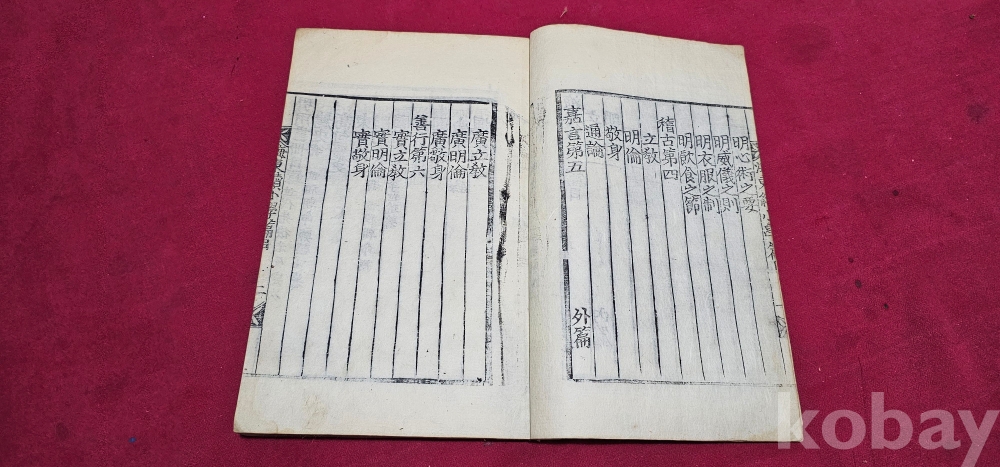 明心術之要
明威儀之則
明衣服之制
明飮食之節
稽古第四
立敎
明倫
敬身
通論
嘉言第五
外篇
廣立敎
廣明倫
廣敬身
善行第六
實立敎
實明倫
實敬身
kobay